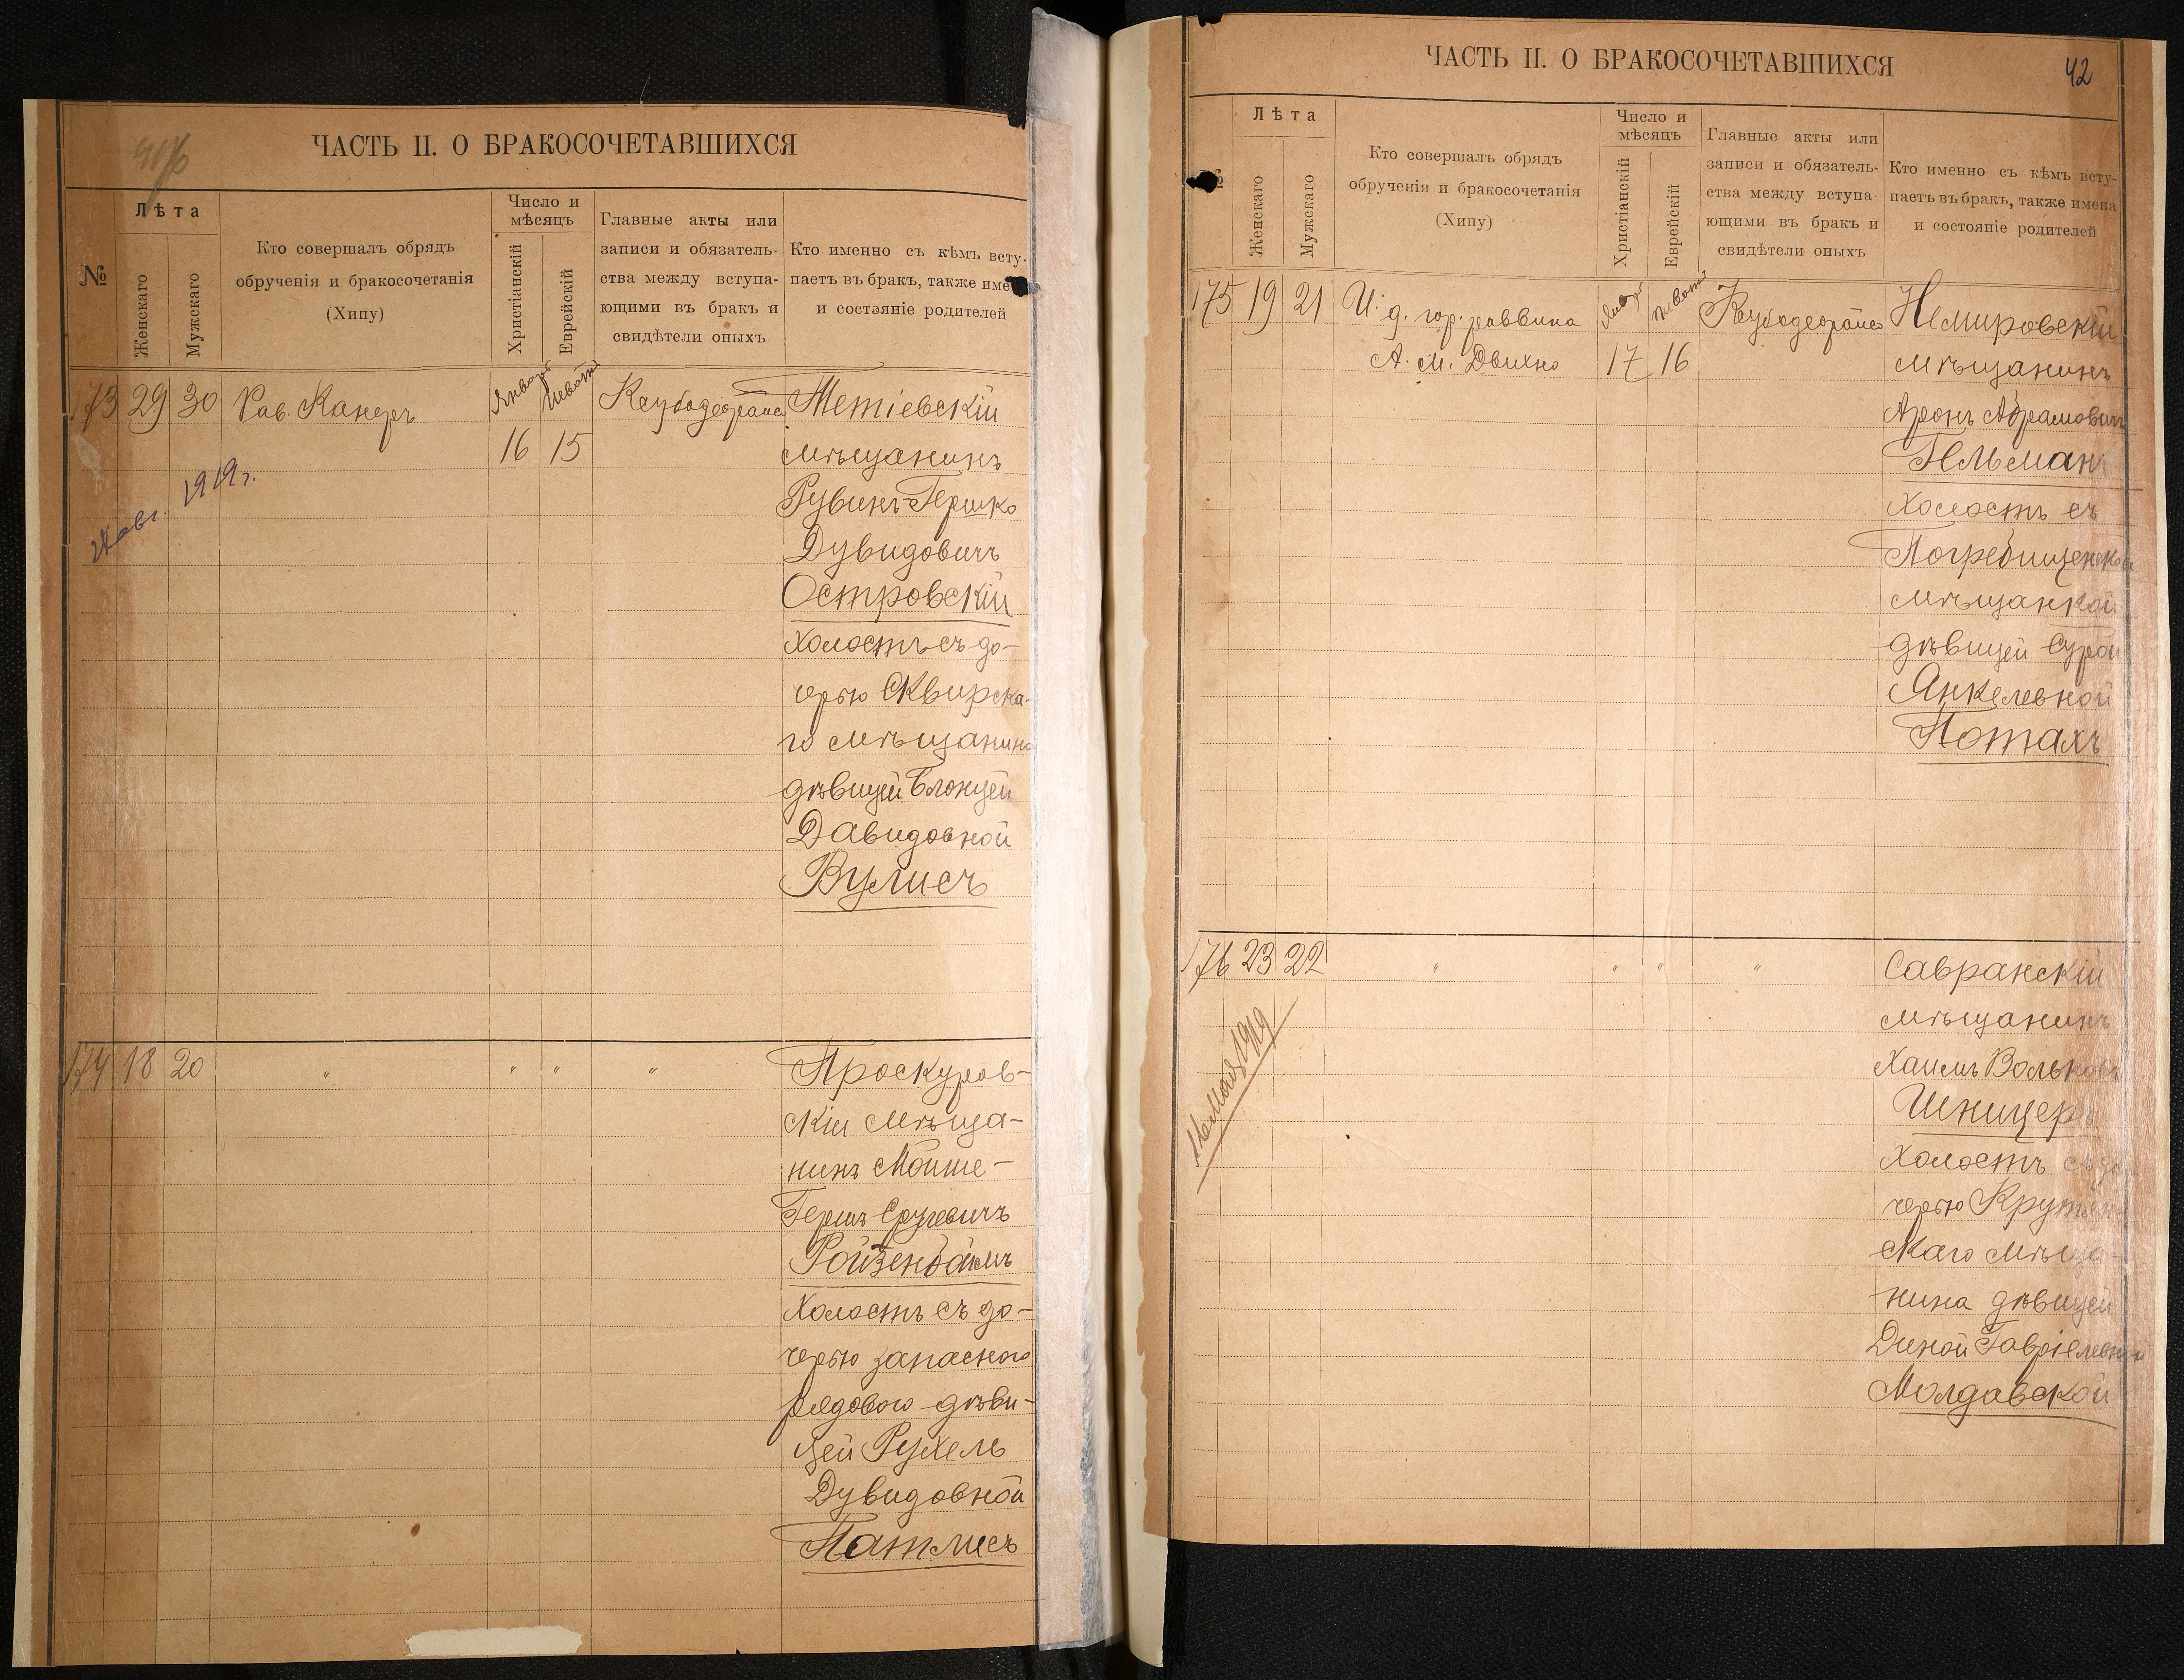 ЧАСТЬ II. О БРАКОСОЧЕТАВШИХСЯ
№
Лѣта
Женскаго
Мужскаго
Кто совершалъ обрядъ
обрученія и бракосочетанія
(Хипу)
Число и
мѣсяцъ
Христіанскій
Еврейскій
Главные акты или
записи и обязатель-
ства между вступа-
ющими въ бракъ и
свидѣтели оныхъ
Кто именно съ кѣмъ всту-
паетъ въ бракъ, также име
и состояніе родителей
173 29 30 Рав. Канеръ
16 15
Тетіевскій
мѣщанинъ
Рувинъ-Гершко
Дувидовичъ
Островскій
холостъ съ до-
черью Сквирска-
го мѣщанина
дѣвицей Блюмцей
Давидовной
Вулисъ
1919г.
174 18 20 " " " "
Проскуров-
скій мѣща-
нинъ Мойше-
Гершъ Срулевичъ
Ройзенбаймъ
холостъ съ до-
черью запаснаго
рядового дѣви-
цей Рухель
Дувидовной
Патлисъ
ЧАСТЬ II. О БРАКОСОЧЕТАВШИХСЯ
42
№
Лѣта
Женскаго
Мужскаго
Кто совершалъ обрядъ
обрученія и бракосочетанія
(Хипу)
Число и
мѣсяцъ
Христіанскій
Еврейскій
Главные акты или
записи и обязатель-
ства между вступа-
ющими въ бракъ и
свидѣтели оныхъ
Кто именно съ кѣмъ всту-
паетъ въ бракъ, также имена
и состояніе родителей
175 19 21 И. д. гор. раввина
А. М. Двихно
17 16
Немировскій
мѣщанинъ
Аронъ Абрамовичъ
Гельманъ
холостъ съ
Погребищенской
мѣщанкой
дѣвицей Сурой
Янкелевной
Потахъ
176 23 22 " " " "
Савранскій
мѣщанинъ
Хаимъ Вольковъ
Шницеръ
холостъ съ до
черью Крутян
скаго мѣща-
нина дѣвицей
Диной Гавріелевной
Молдавской
16 мая 1919